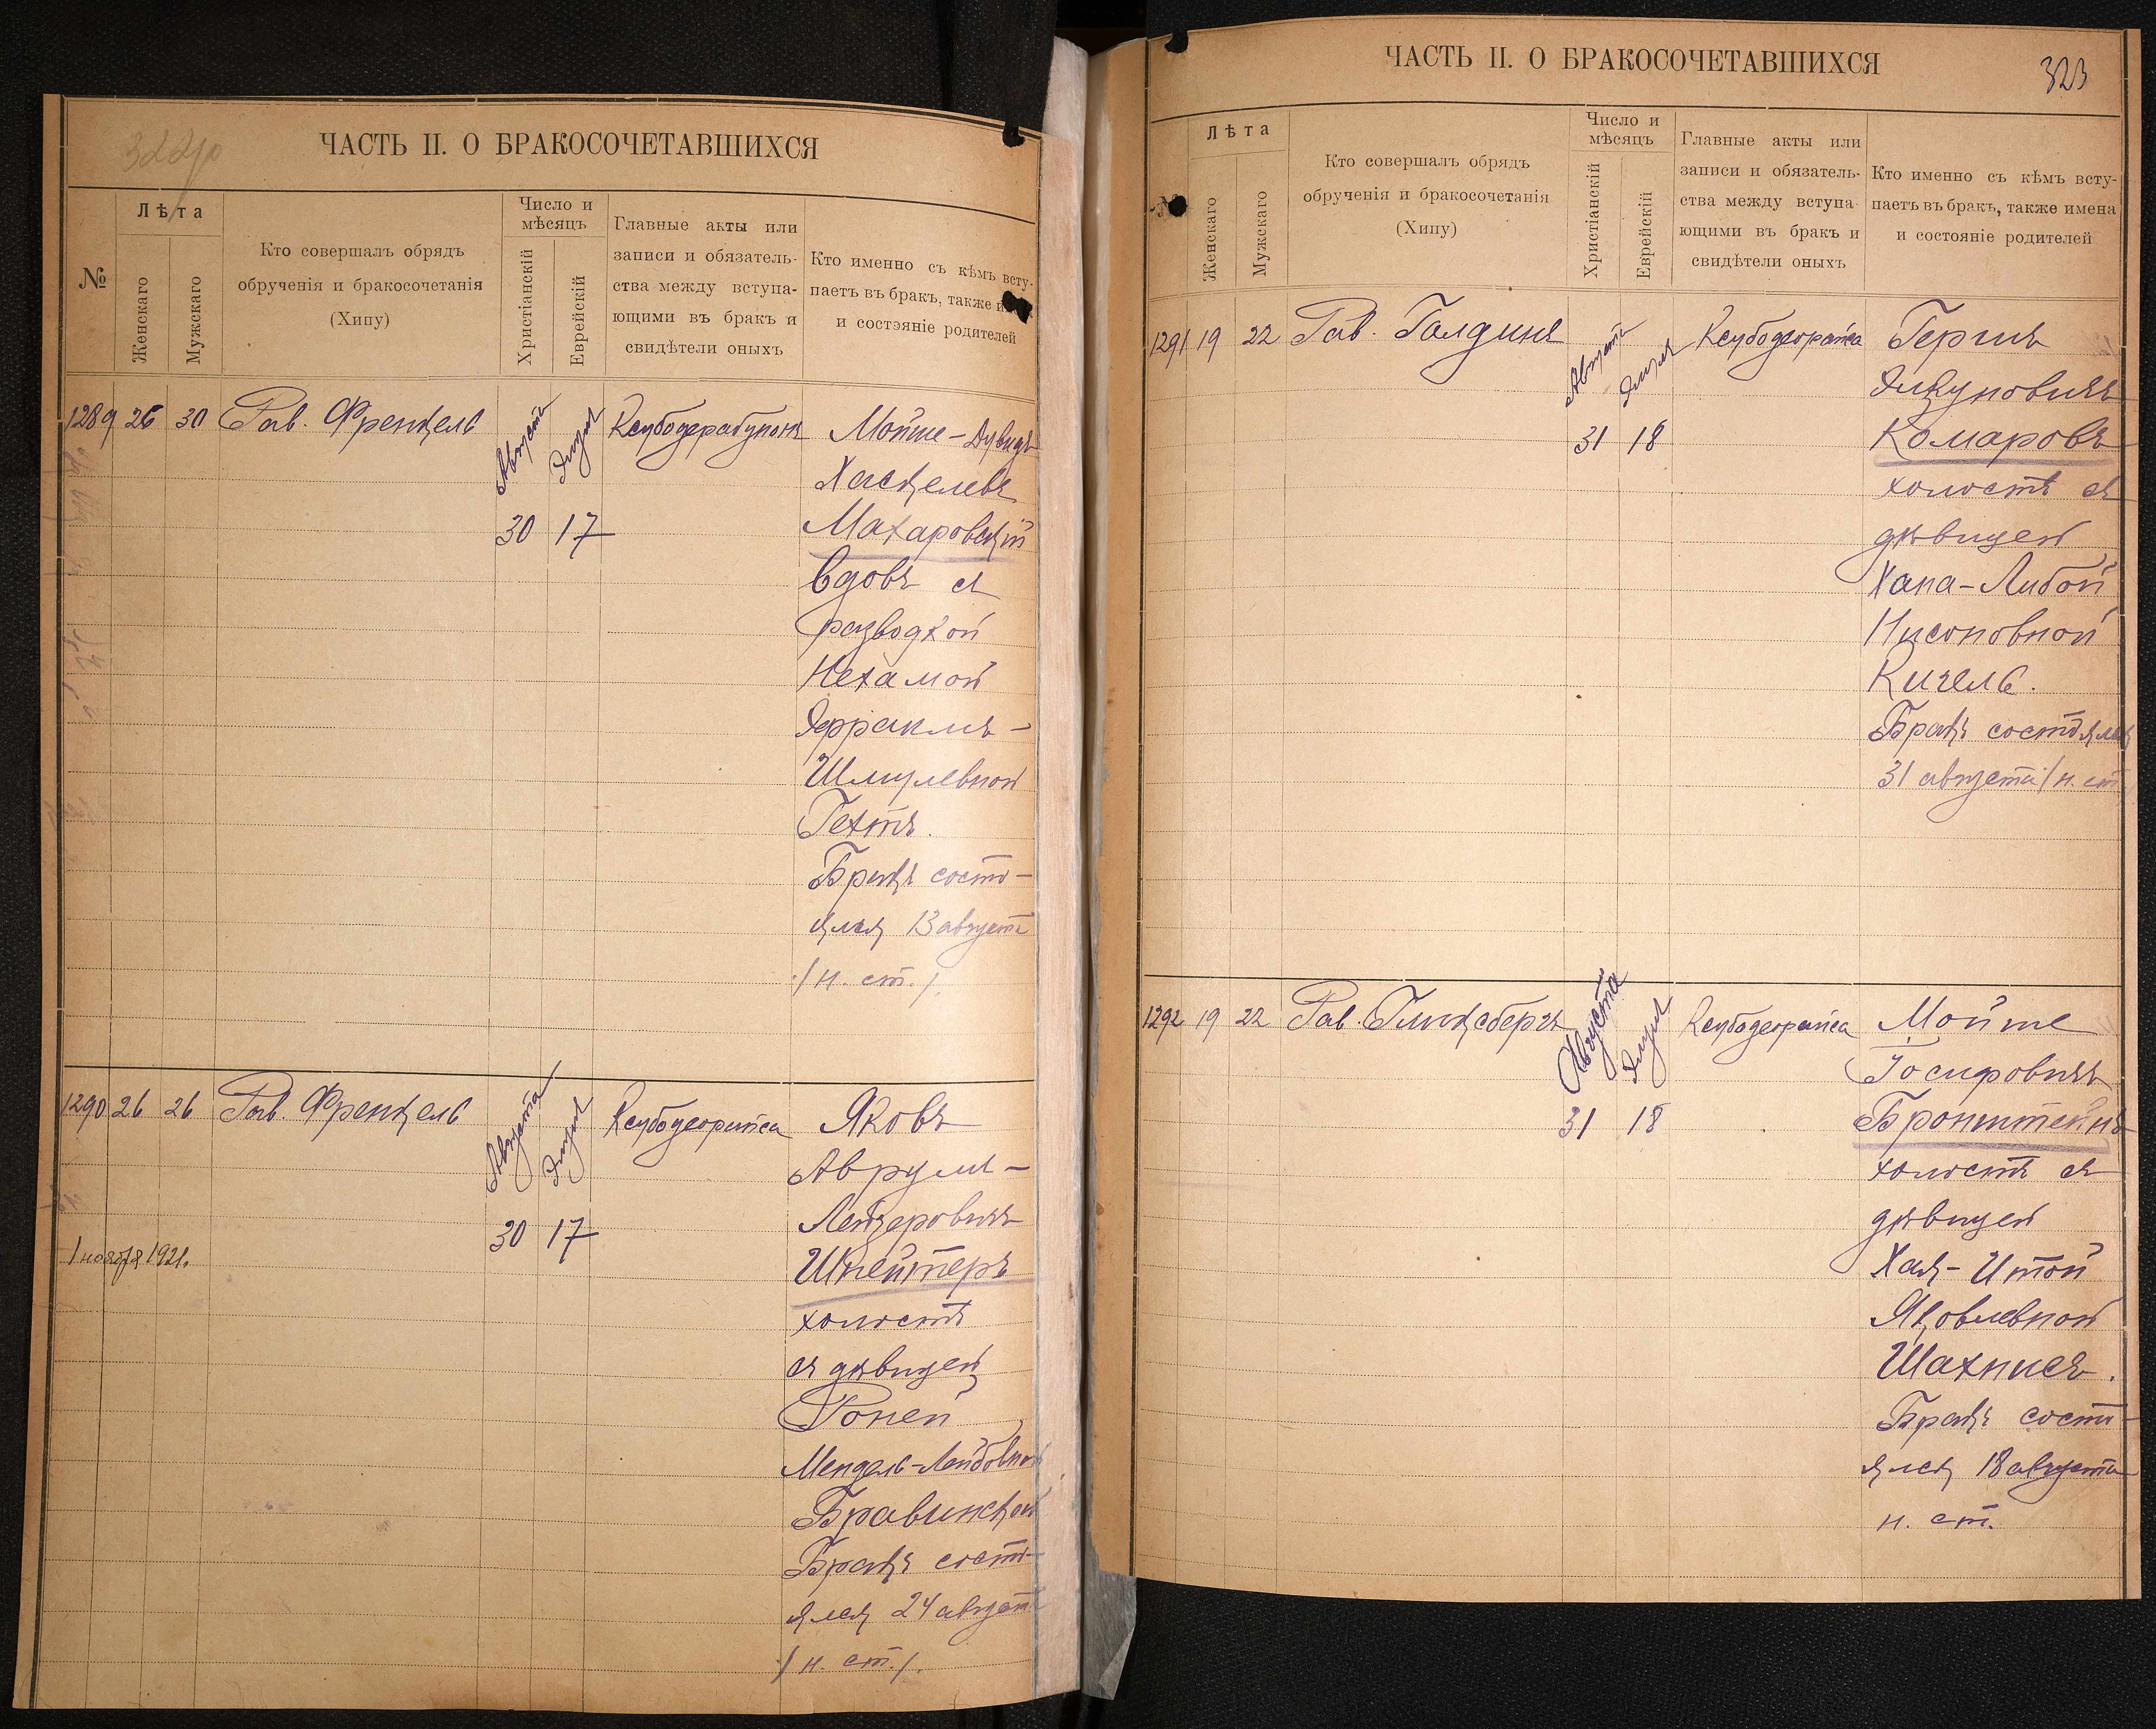 ЧАСТЬ II. О БРАКОСОЧЕТАВШИХСЯ
№
Лѣта
Женскаго
Мужскаго
Кто совершалъ обрядъ
обрученія и бракосочетанія
(Хипу)
Число и
мѣсяцъ
Христіанскій
Еврейскій
Главные акты или
записи и обязатель-
ства между вступа-
ющими въ бракъ и
свидѣтели оныхъ
Кто именно съ кѣмъ всту-
паетъ въ бракъ, также
и состояніе родителей
1289 26 30 Рав. Френкель
Августа
Элуля
30 17
Мойше-Дувидъ
Хаскелевъ
Махаровскій
вдовъ съ
разводкой
Нехамой
Эфраимъ-
Шмулевной
Гехтъ.
Бракъ состо-
ялся 13 августа
/н. ст./.
1290 26 26 Рав. Френкель
Августа
Элуля
30 17
Ксубодеорайса
Яковъ
Аврум-
Лейзеровичъ
Шнейтеръ
холостъ
съ дѣвицей
Роней
Мендель-Лейбовной
Бравинской
Бракъ состо-
ялся 24 августа
/н. ст./.
1 ноября 1921.
ЧАСТЬ II. О БРАКОСОЧЕТАВШИХСЯ
323
№
Лѣта
Женскаго
Мужскаго
Кто совершалъ обрядъ
обрученія и бракосочетанія
(Хипу)
Число и
мѣсяцъ
Христіанскій
Еврейскій
Главные акты или
записи и обязатель-
ства между вступа-
ющими въ бракъ и
свидѣтели оныхъ
Кто именно съ кѣмъ всту-
паетъ въ бракъ, также имена
и состояніе родителей
1291 19 22 Рав. Голдинъ
Августа
Элуля
31 18
Ксубодеорайса
Гершъ
Янкуновичъ
Комаровъ
холостъ съ
дѣвицей
Хана-Либой
Нисоновной
Кигель.
Бракъ состоялся
31 августа /н. ст.
1292 19 22 Рав. Гинксбергъ
Августа
Элуля
31 18
Ксубодеорайса
Мойше
Іосифовичъ
Бронштейнъ
холостъ съ
дѣвицей
Хая-Итой
Яковлевной
Шахнисъ.
Бракъ состо-
ялся 18 августа
н. ст.